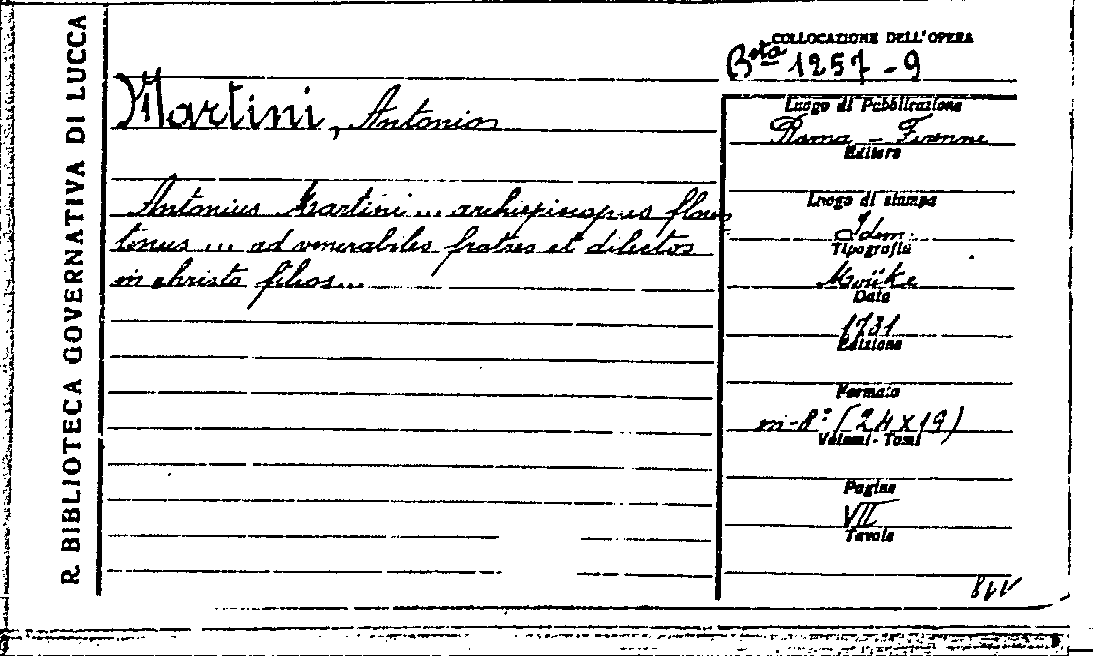 R. BIBLIOTECA GOVERNATIVA DI LUCCA
COLLOCAZIONE DELL'OPERA
Bta 1257-9
Martini, Antonio
Luogo di Pubblicazione
Roma - Firenze
Editore
Antonius Martini... archiepiscopus floren
tinus ... ad venerabiles fratres et dilectos
in christo filios...
Luogo di stampa
Idem.
Tipografia
Moüke
Data
1781
Edizione
Formato
in-8º (24x19)
Volumi - Tomi
Pagine
VII
Tavole